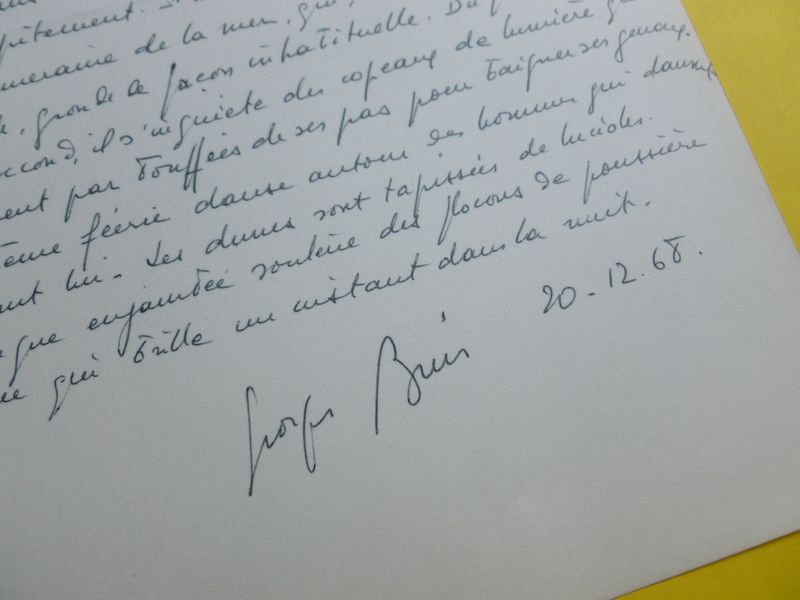 de la mer, qui,
gronde de façon inhabituelle. Du
il s'inquiète des copeaux de lumière
par bouffées de ses pas pour baigner ses genoux.
féérie danse autour des hommes qui dansent
lui. Les dunes sont tapissées de lucioles.
enjambée soulève des flocons de poussière
qui brille un instant dans la nuit.
20-12.68.
Georges Buis